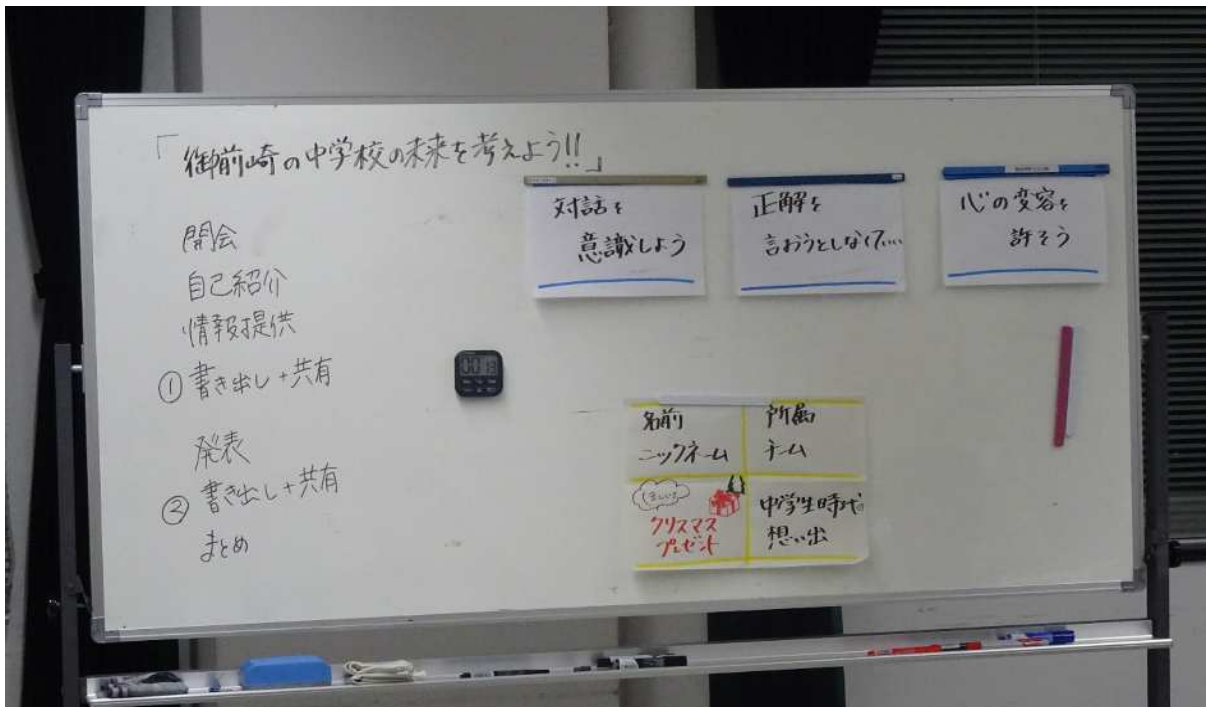 「御前崎の中学校の未来を考えよう!!」
開会
自己紹介
情報提供
① 書き出し+共有
発表
② 書き出し+共有
まとめ
対話を
意識しよう
正解を
言おうとしなくていい
心の変容を
許そう
名前
ニックネーム
所属
チーム
ほしい
クリスマス
プレゼント
中学生時代の
想い出